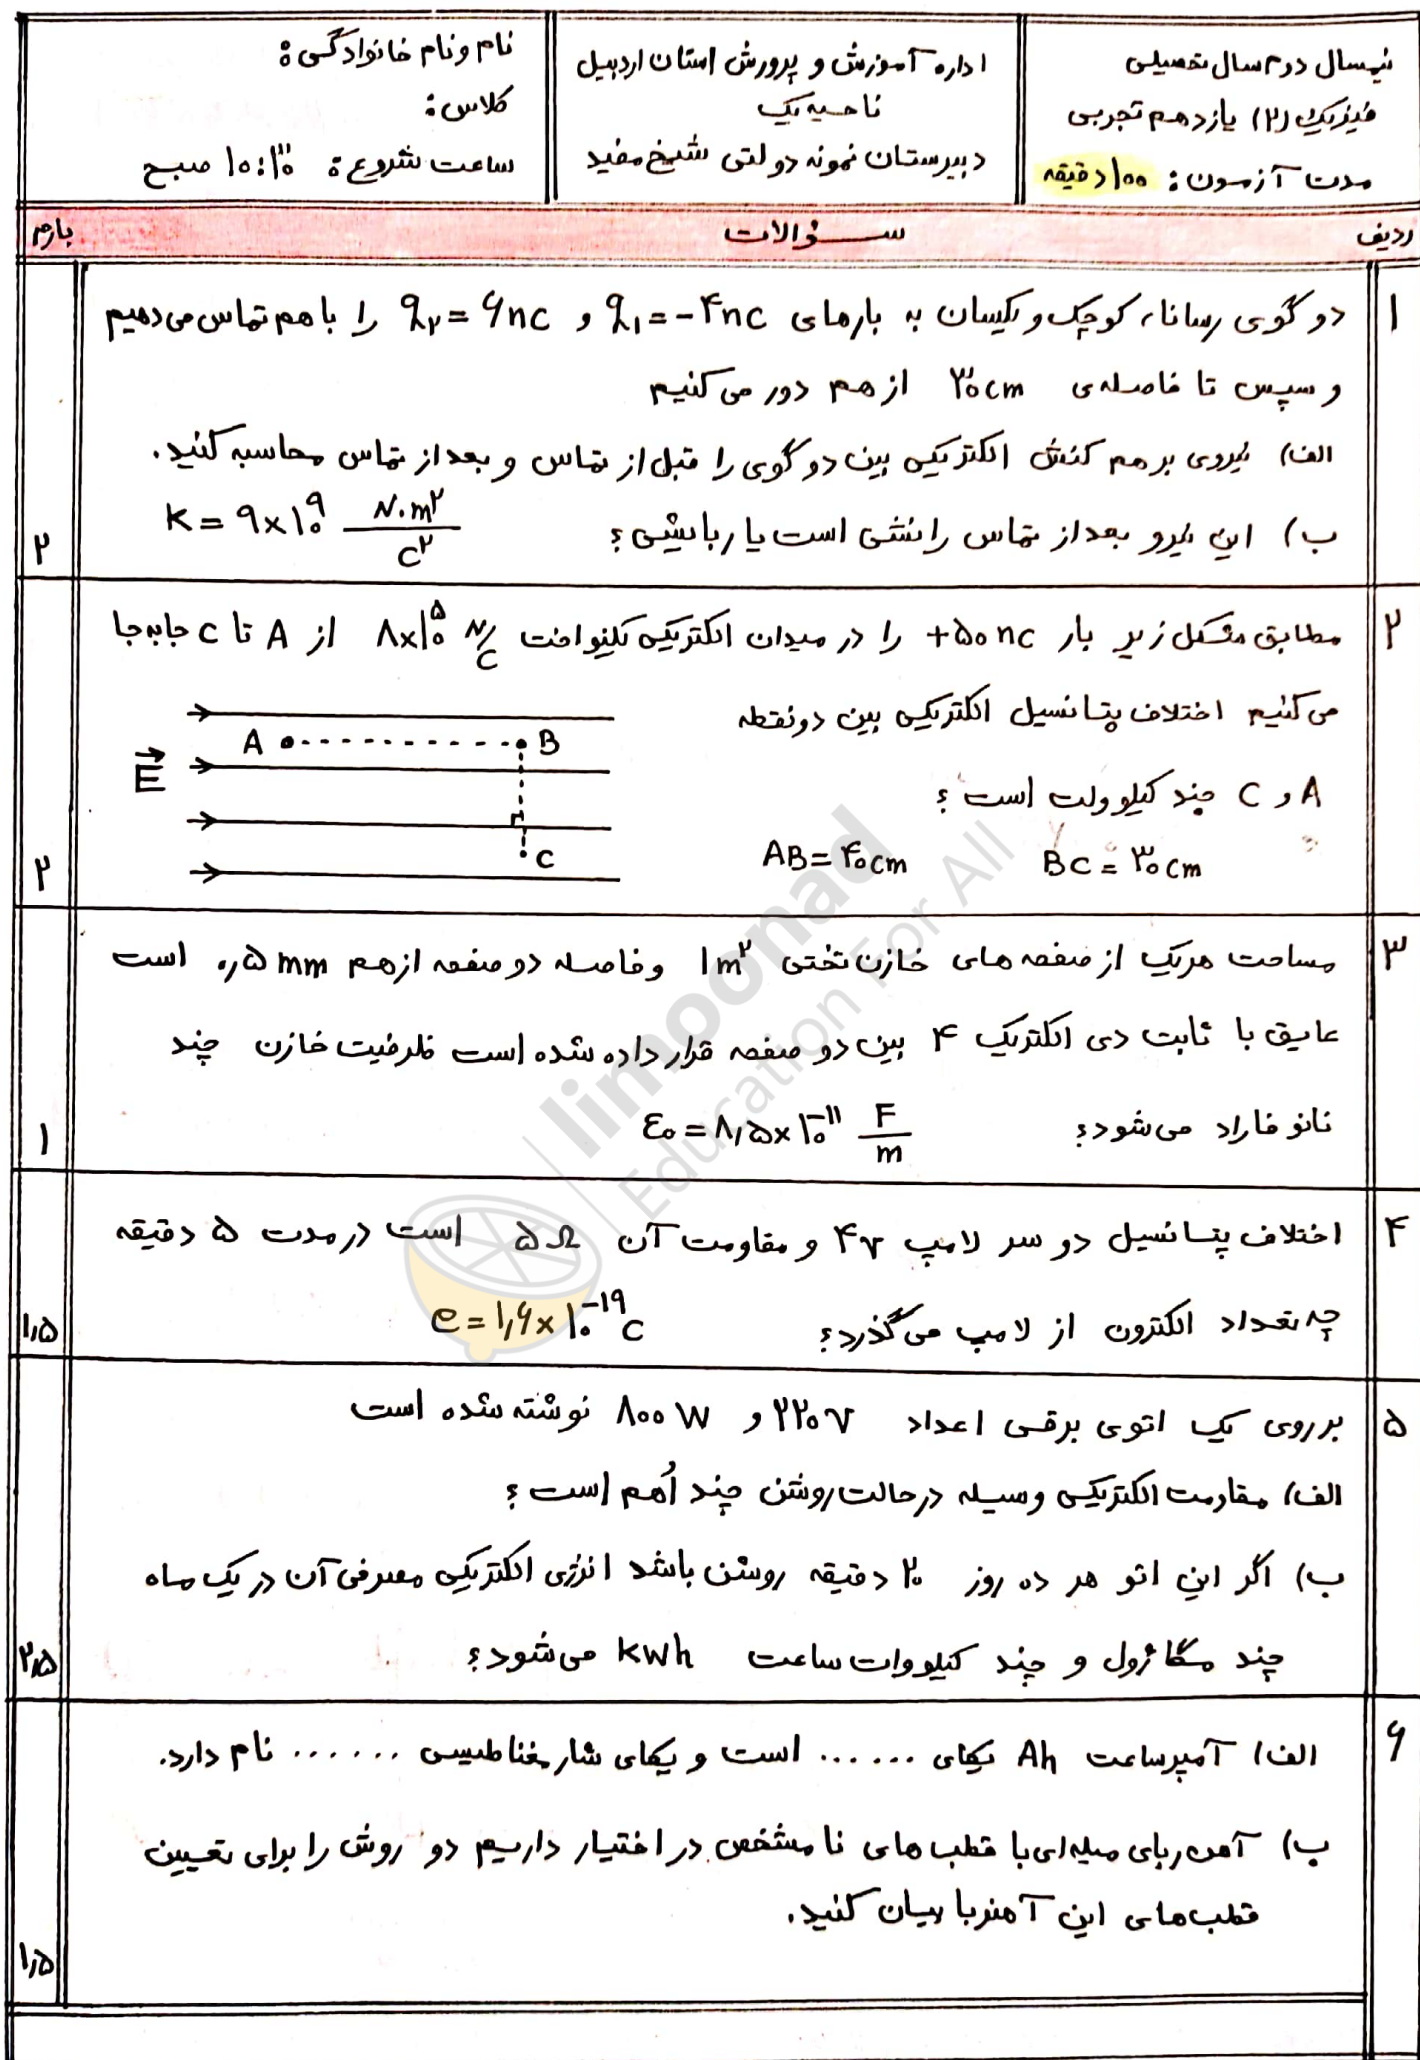 نیمسال دوم سال تحصیلی
فیزیک (۲) یازدهم تجربی
مدت آزمون: ۱۰۰ دقیقه
اداره آموزش و پرورش استان اردبیل
ناحیه یک
دبیرستان نمونه دولتی شیخ مفید
نام و نام خانوادگی:
کلاس:
ساعت شروع: ۱۰:۳۰ صبح
ردیف سوالات بارم
۱ دو گوی رسانا، کوچک و یکسان به بارهای q₁=-۴nc و q₂=۶nc را با هم تماس می دهیم
و سپس تا فاصله ی ۳۰cm از هم دور می کنیم
الف) نیروی برهم کنش الکتریکی بین دو گوی را قبل از تماس و بعد از تماس محاسبه کنید.
ب) این نیرو بعد از تماس رانشی است یا ربایشی؟ K=۹×۱۰⁹ N.m²/C²
۲
۲ مطابق شکل زیر بار +۵۰nc را در میدان الکتریکی یکنواخت ۸×۱۰⁵ N/C از A تا C جابه جا
می کنیم اختلاف پتانسیل الکتریکی بین دو نقطه
A و C چند کیلوولت است؟
AB=۴۰cm BC=۳۰cm
E A B C
۲
۳ مساحت هر یک از صفحه های خازن تختی ۱m² و فاصله دو صفحه از هم ۰٫۵mm است
عایق با ثابت دی الکتریک ۴ بین دو صفحه قرار داده شده است ظرفیت خازن چند
نانو فاراد می شود؟ ε₀=۸٫۵×۱۰⁻¹¹ F/m
۱
۴ اختلاف پتانسیل دو سر لامپ ۴v و مقاومت آن ۵Ω است در مدت ۵ دقیقه
چه تعداد الکترون از لامپ می گذرد؟ e=۱٫۶×۱۰⁻¹⁹c
۱٫۵
۵ بر روی یک اتوی برقی اعداد ۲۲۰V و ۸۰۰W نوشته شده است
الف) مقاومت الکتریکی وسیله در حالت روشن چند اُهم است؟
ب) اگر این اتو هر ده روز ۲۰ دقیقه روشن باشد انرژی الکتریکی مصرفی آن در یک ماه
چند مگاژول و چند کیلووات ساعت kwh می شود؟
۲٫۵
۶ الف) آمپرساعت Ah یکای ...... است و یکای شار مغناطیسی ...... نام دارد.
ب) آهن ربای میله ای با قطب های نامشخص در اختیار داریم دو روش را برای تعیین
قطب های این آهنربا بیان کنید.
۱٫۵
limoonad
Education For All